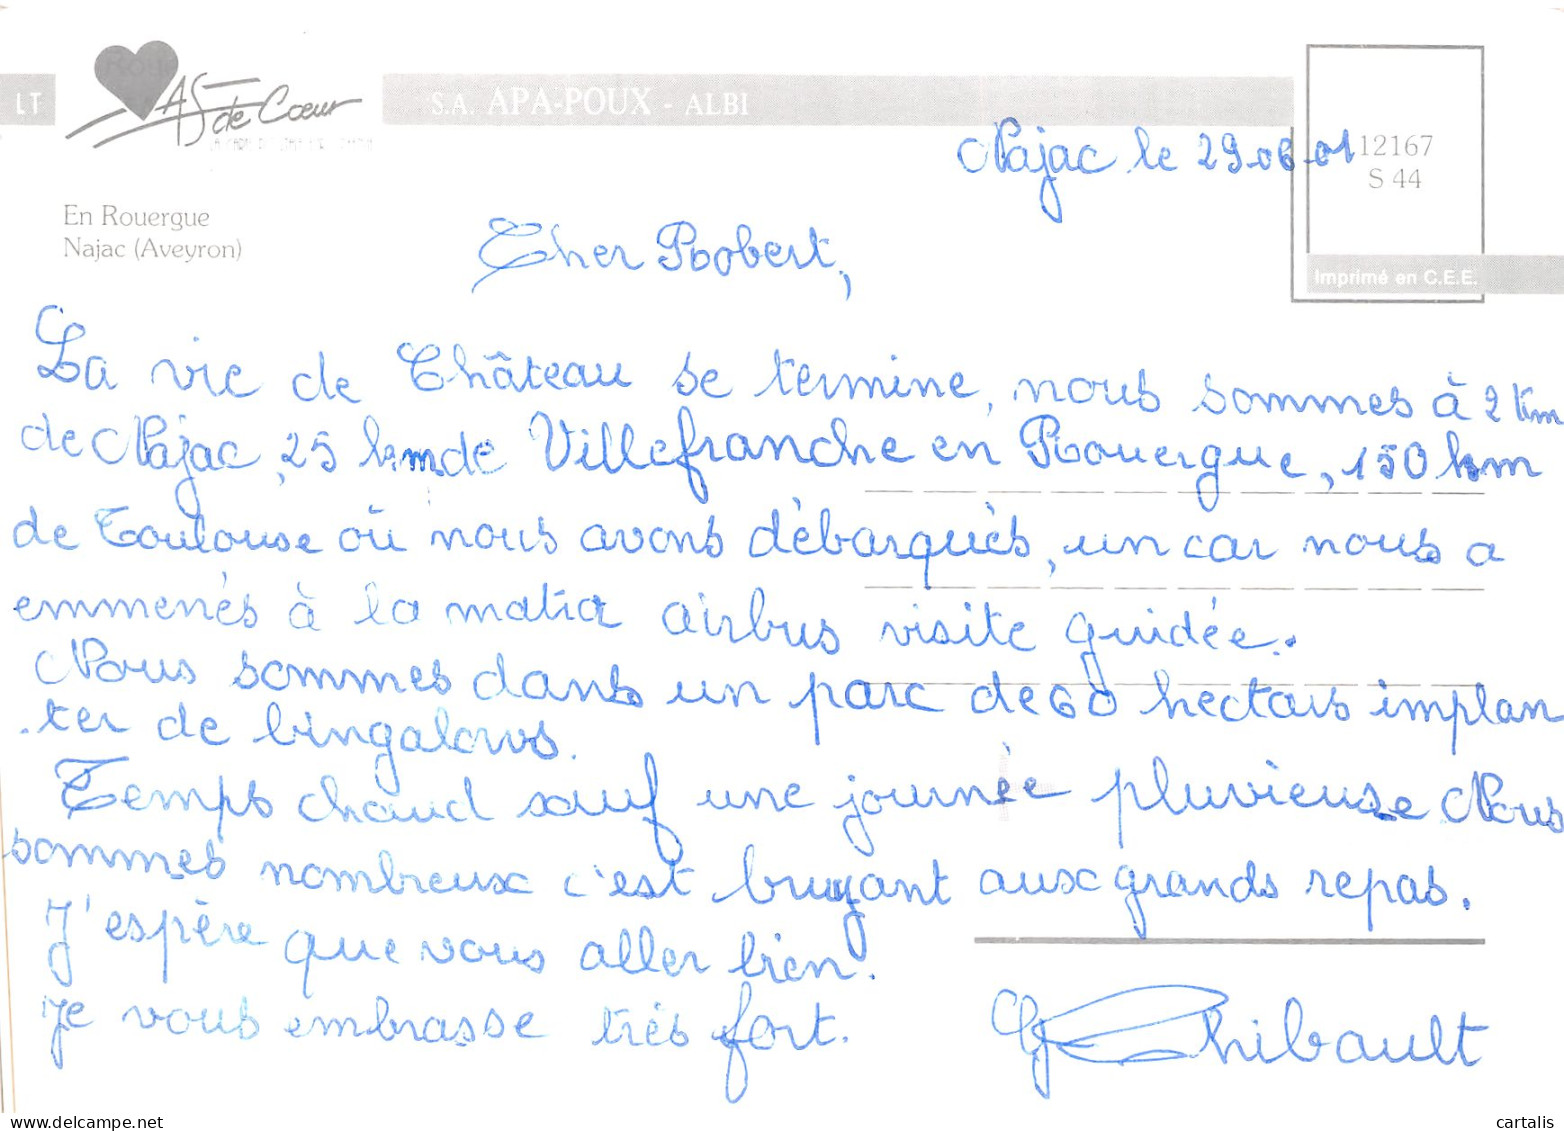 LT
AS de Coeur
S.A. APA-POUX - ALBI
En Rouergue
Najac (Aveyron)
12167
S 44
Imprimé en C.E.E.
Najac le 29.06.01
Cher Robert,
La vie de Château se termine, nous sommes à 2 km
de Najac, 25 km de Villefranche en Rouergue, 150 km
de Toulouse où nous avons débarqués, un car nous a
emmenés à la matra airbus visite guidée.
Nous sommes dans un parc de 60 hectars implan
.ter de bingalows.
Temps chaud sauf une journée pluvieuse Nous
sommes nombreux c'est bruyant aux grands repas.
J'espère que vous aller bien.
Je vous embrasse très fort.
Thibault
delcampe.net
cartalis